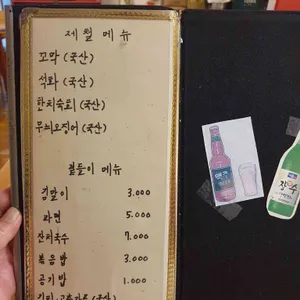 제철 메뉴
꼬막 (국산)
석화 (국산)
한치숙회 (국산)
무늬오징어 (국산)
곁들이 메뉴
김말이 3.000
라면 5.000
잔치국수 7.000
볶음밥 3.000
공기밥 1.000
장수